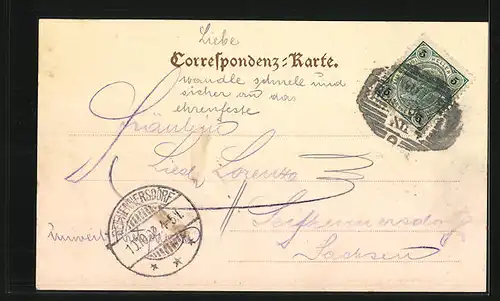 Liebe
Correspondenz-Karte.
wandle schnell und
sicher an das
ehrenfeste
Fräulein
Liesel Lorenz
Seifhennersdorf
Sachsen
SEIFHENNERSDORF
5
5
XII